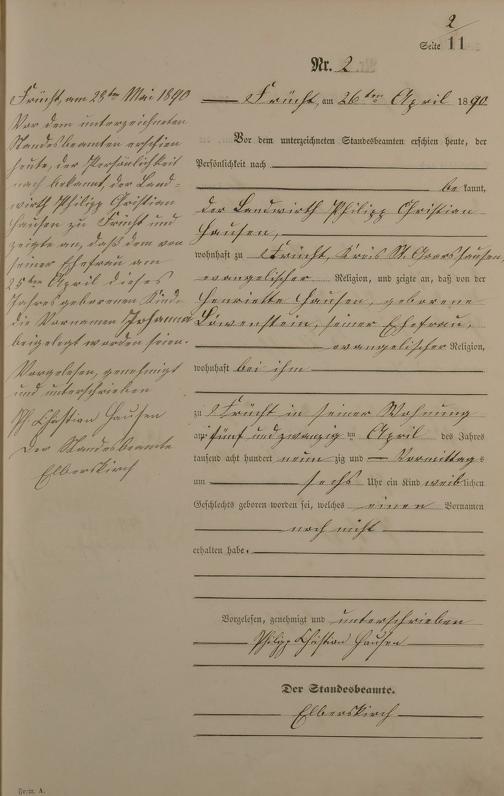 2
Seite 11
Nr. 2
Frücht, am 28ten Mai 1890
Vor dem unterzeichneten
Standesbeamten erschien
heute, der Persönlichkeit
nach bekannt, der Land-
wirth Philipp Christian
Hausen zu Frücht und
zeigte an, daß dem von
seiner Ehefrau am
25ten April dieses
Jahres geborenen Kinde
die Vornamen Johanna
beigelegt worden seien.
Vorgelesen, genehmigt
und unterschrieben
Ph. Christian Hausen
Der Standesbeamte
Elberskirch
Frücht, am 26ten April 1890.
Vor dem unterzeichneten Standesbeamten erschien heute, der
Persönlichkeit nach
bekannt,
der Landwirth Philipp Christian
Hausen,
wohnhaft zu Frücht, Kreis St. Goarshausen,
evangelischer Religion, und zeigte an, daß von der
Henriette Hausen, geborene
Löwenstein, seiner Ehefrau,
evangelischer Religion,
wohnhaft bei ihm
zu Frücht in seiner Wohnung
am fünf und zwanzig ten April des Jahres
tausend acht hundert neunzig und Vormittags
um sechs Uhr ein Kind weiblichen
Geschlechts geboren worden sei, welches einen Vornamen
noch nicht
erhalten habe.
Vorgelesen, genehmigt und unterschrieben
Philipp Christian Hausen
Der Standesbeamte.
Elberskirch
Form. A.